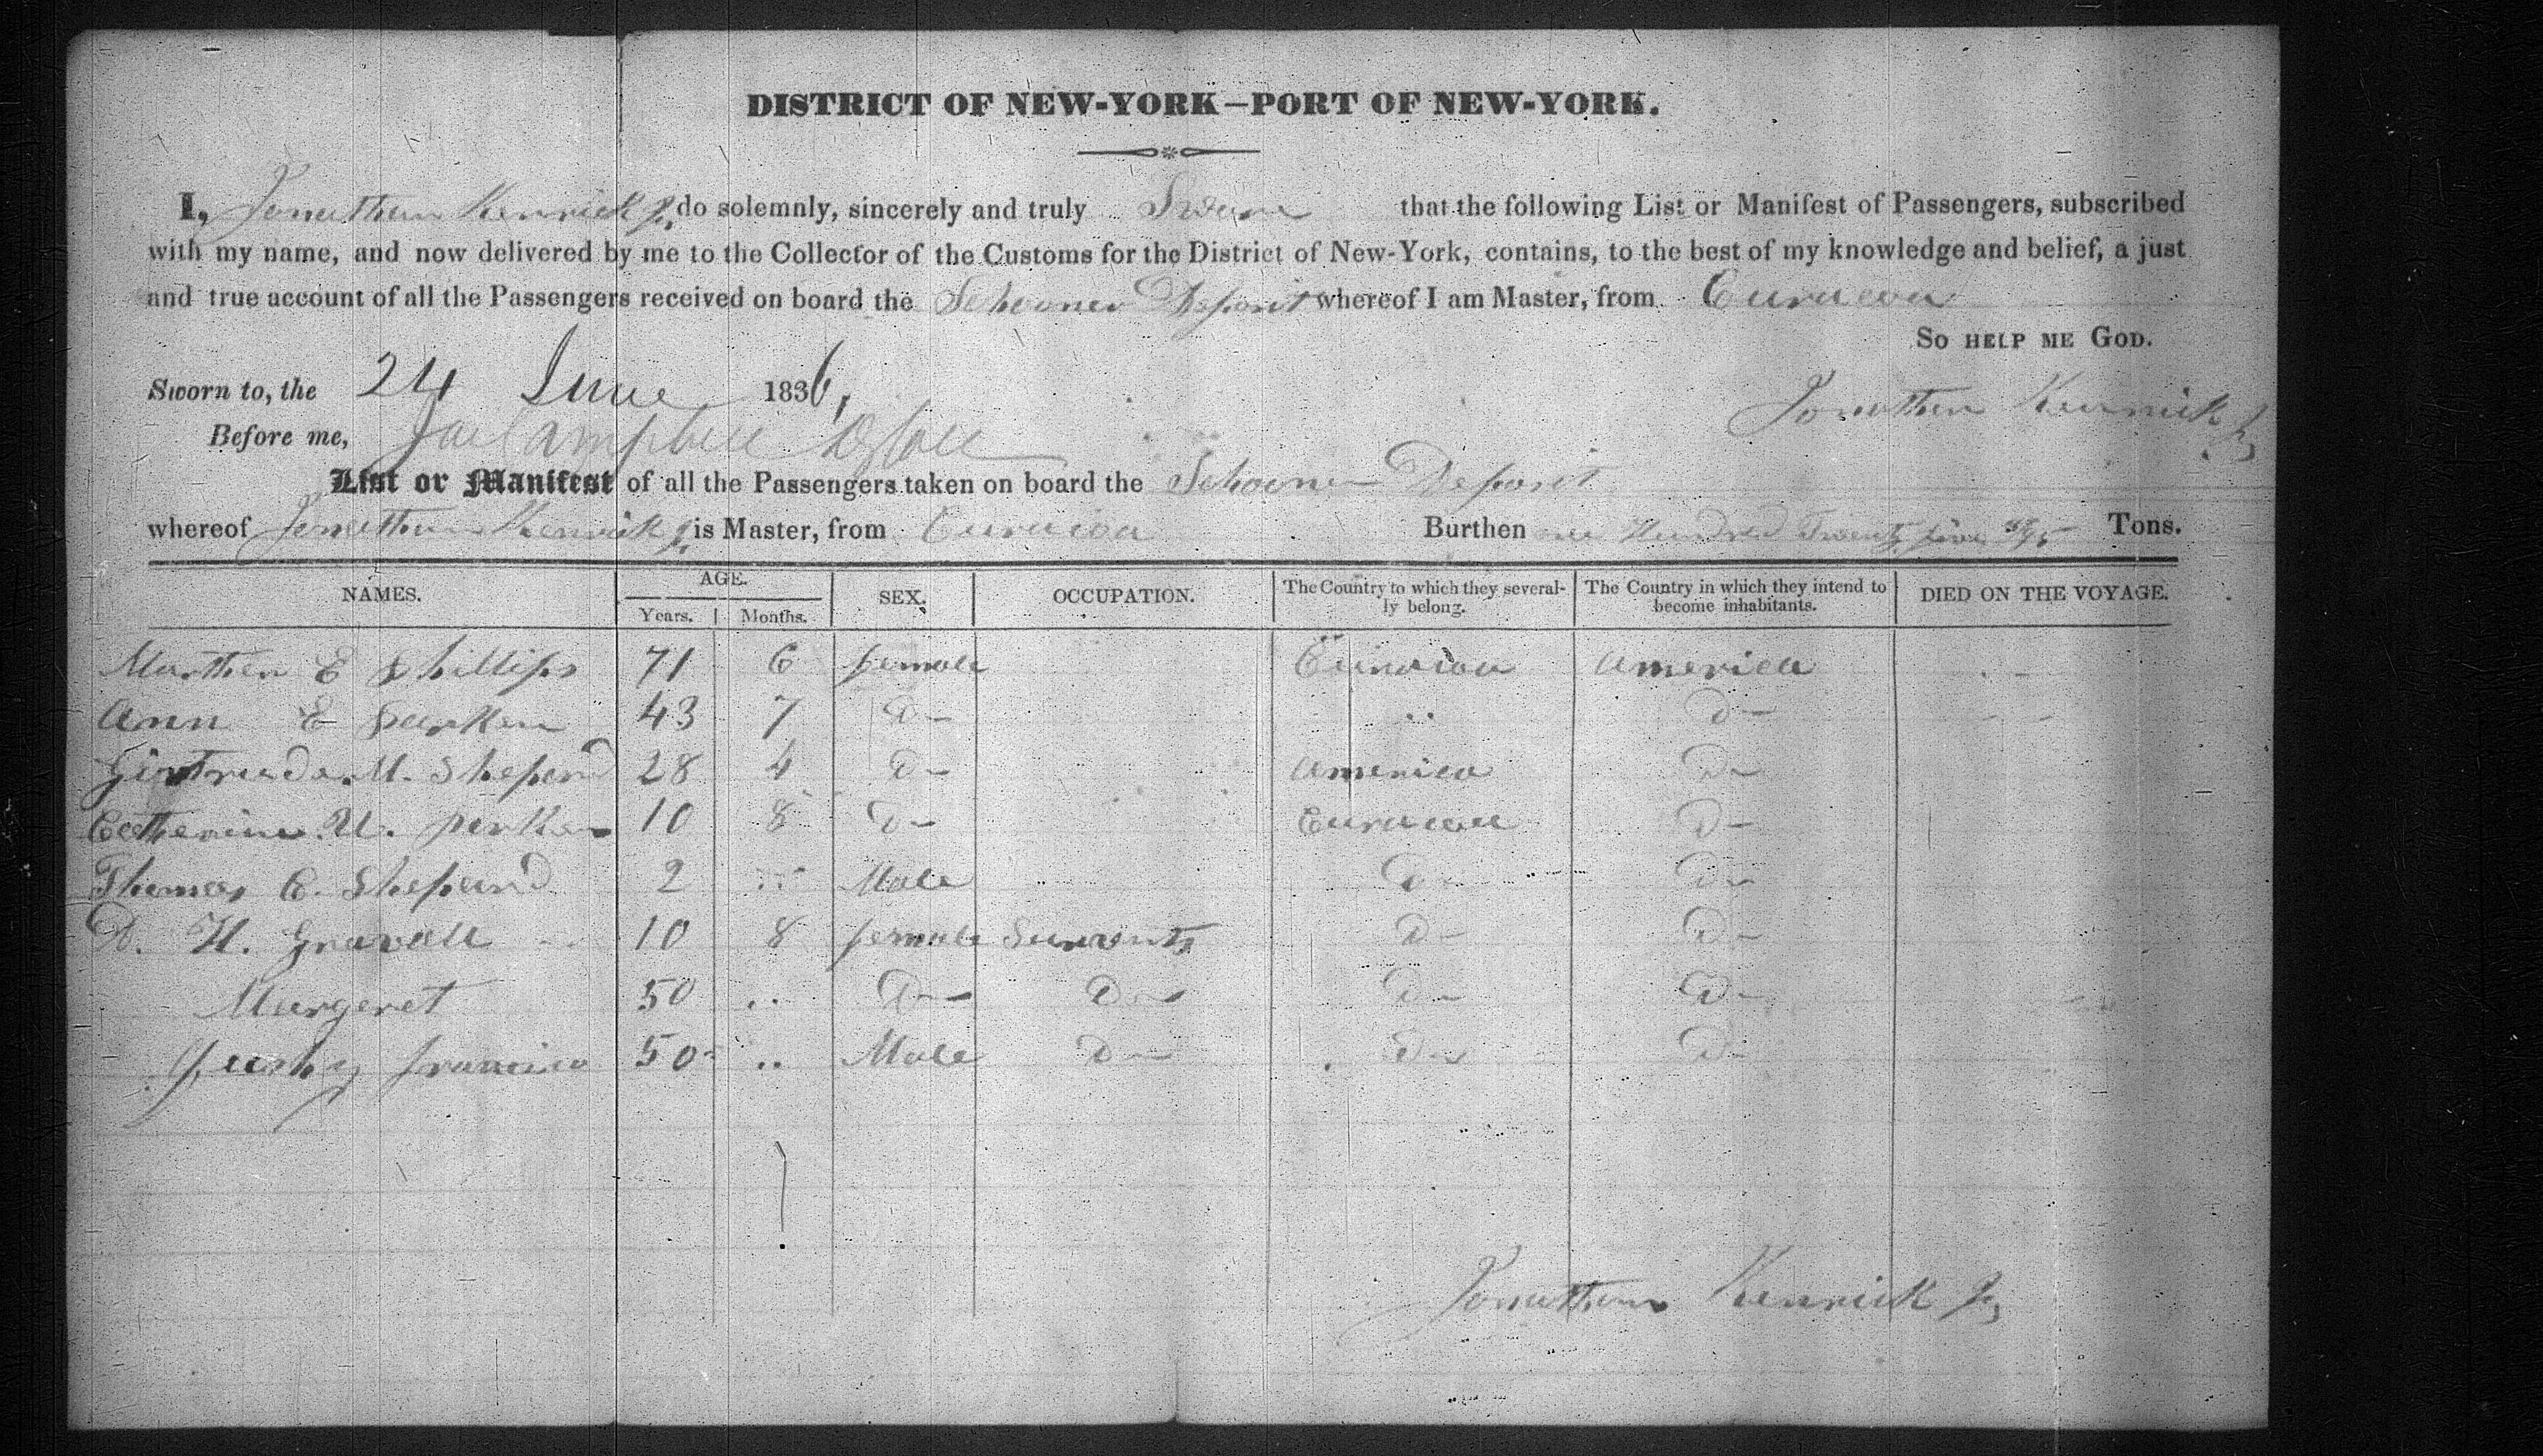 DISTRICT OF NEW-YORK—PORT OF NEW-YORK.
I, Jonathan Kenrick Jr. do solemnly, sincerely and truly Swear that the following List or Manifest of Passengers, subscribed
with my name, and now delivered by me to the Collector of the Customs for the District of New-York, contains, to the best of my knowledge and belief, a just
and true account of all the Passengers received on board the Schooner Deposit whereof I am Master, from Curacoa
So HELP ME GOD.
Sworn to, the 24 June 1836,
Jonathan Kenrick Jr
Before me, Campbell
List or Manifest of all the Passengers taken on board the Schooner Deposit
whereof Jonathan Kenrick Jr. is Master, from Curacoa Burthen one Hundred Twenty five Tons.
NAMES. AGE. SEX. OCCUPATION. The Country to which they severally belong. The Country in which they intend to become inhabitants. DIED ON THE VOYAGE.
Years. Months.
Marthen E Phillips 71 6 female Curacoa America
Ann E 43 7 D– " D–
M. Sheperd 28 4 D– America D–
Catherine 10 8 D– Curacoa D–
Thomas E. Sheperd 2 " Male D– D–
D. H. 10 8 female Survents D– D–
Margeret 50 .. D– D– D– D–
francisco 50 .. Male D– D– D–
Jonathan Kenrick Jr